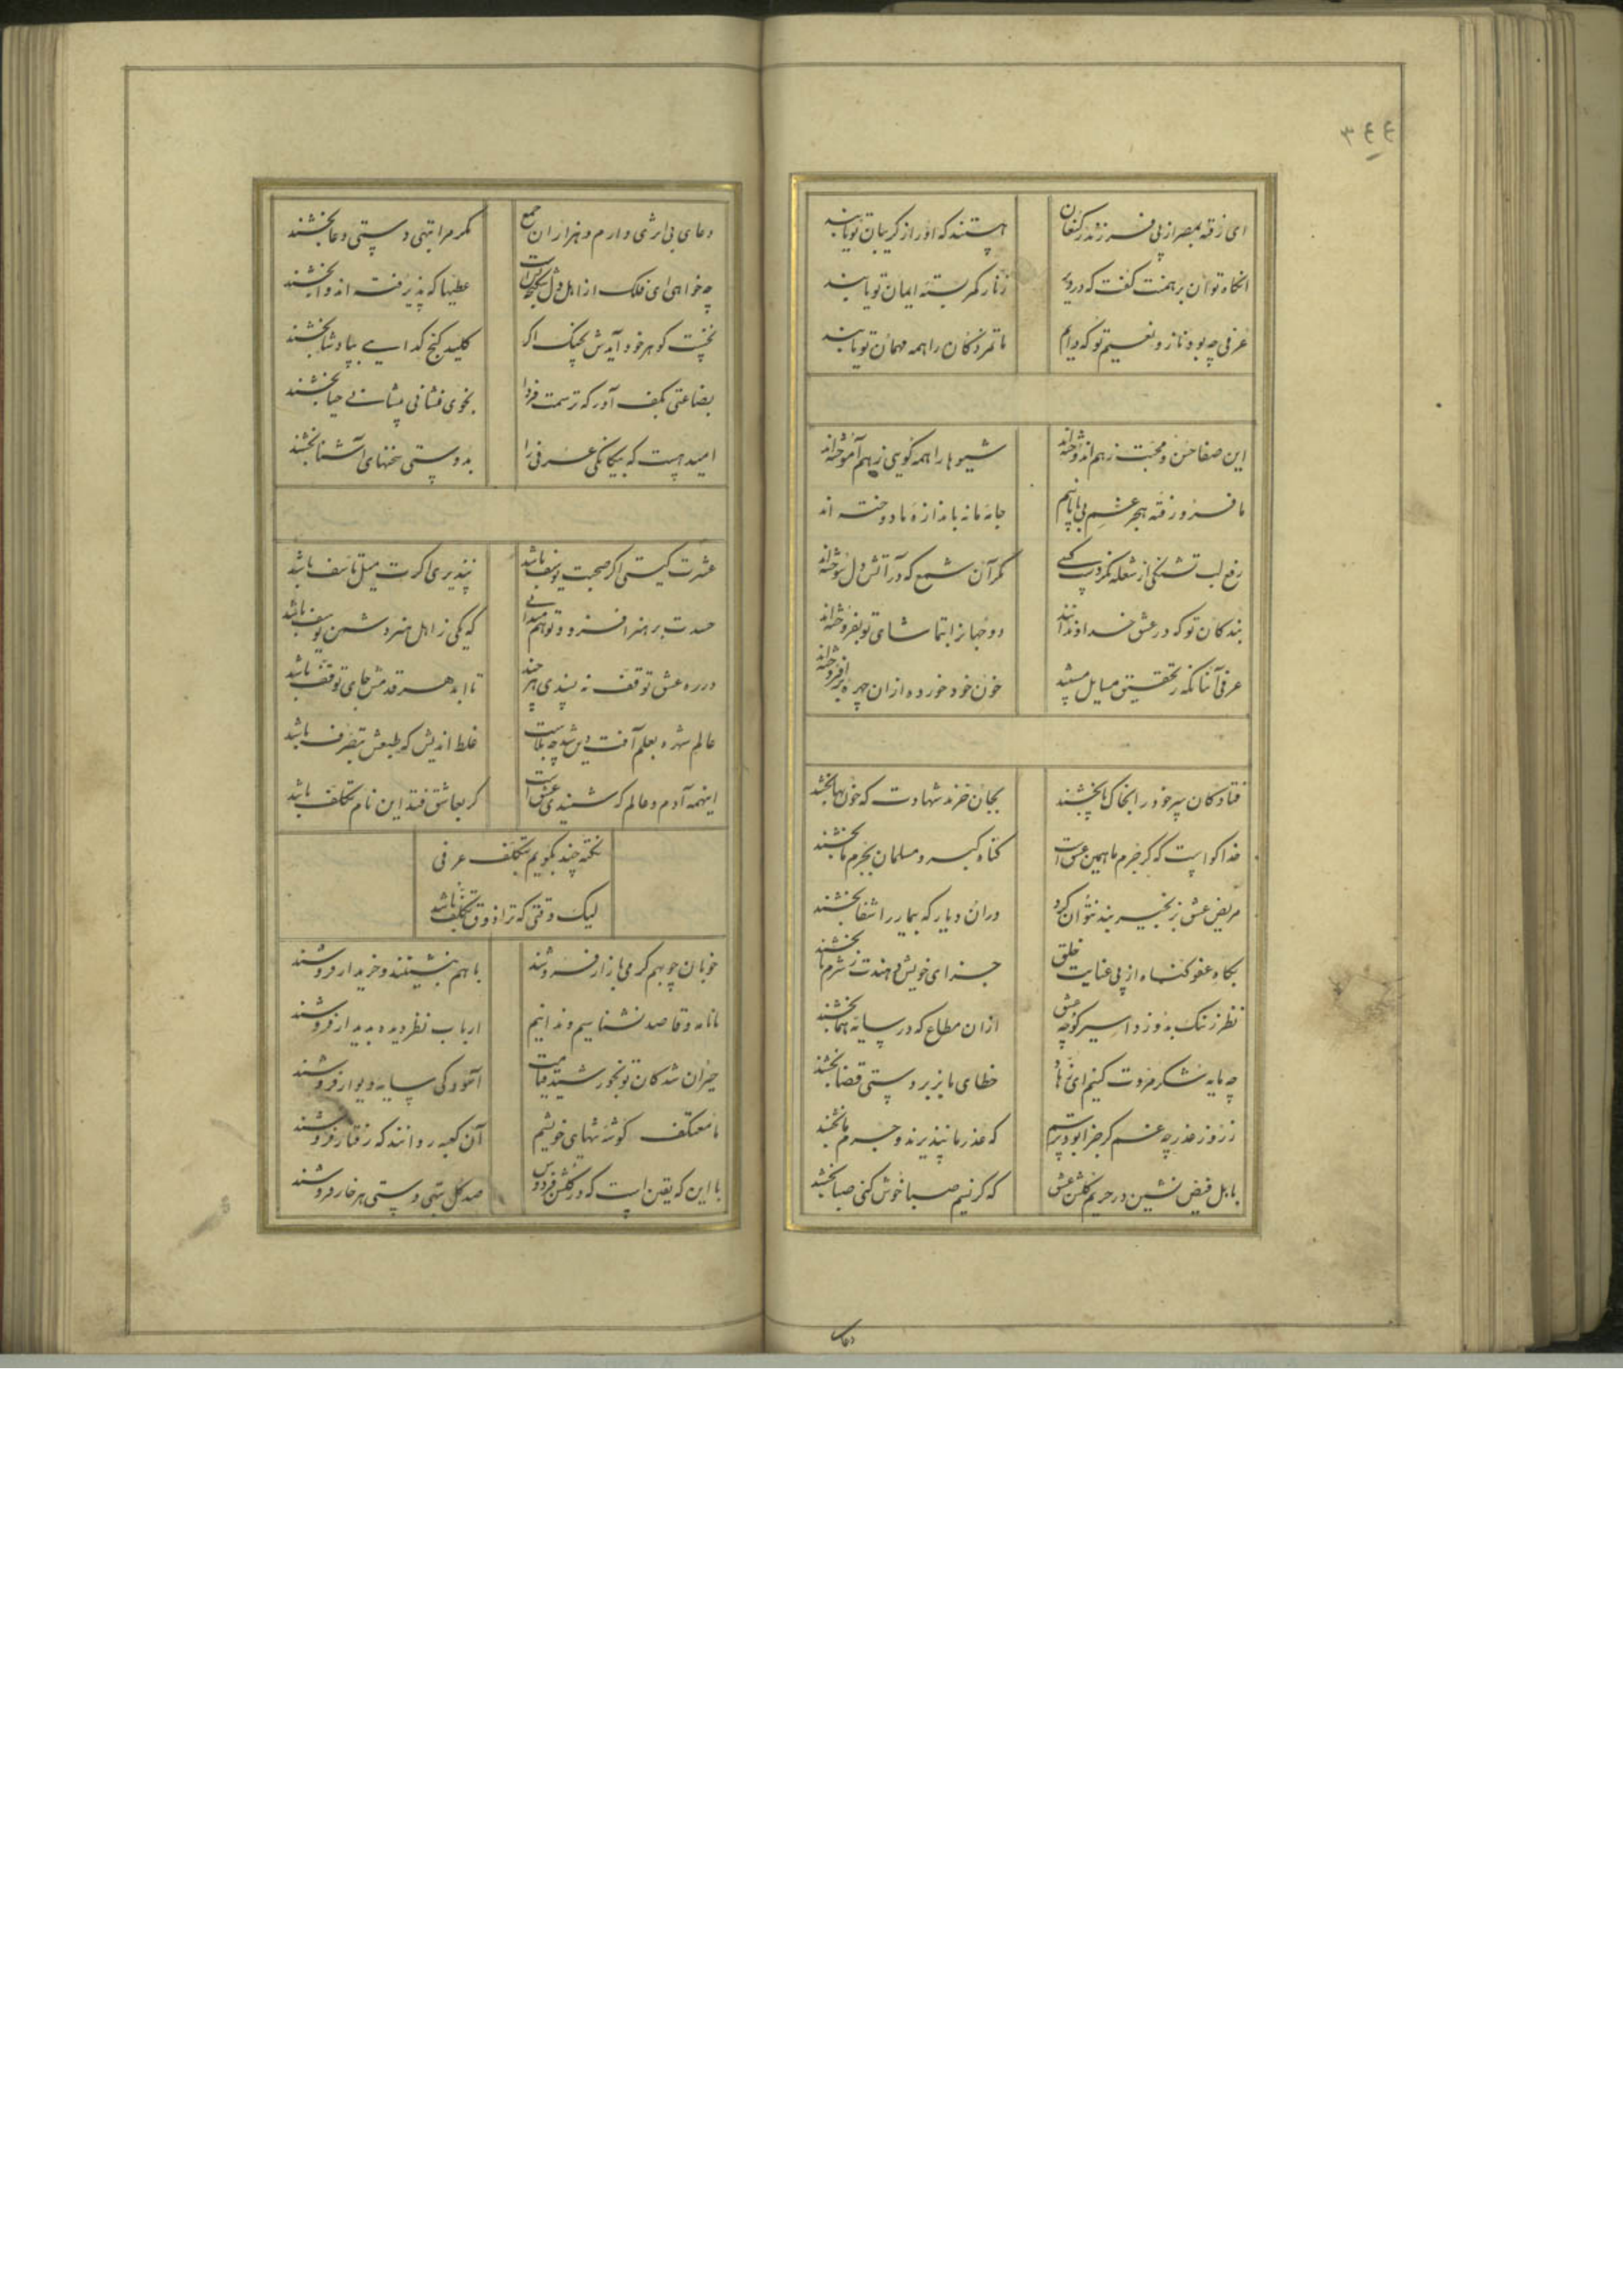 ۳۴۴
ای رفته بمصر از پی فرزند ز کنعان
هستند که او را ز گریبان تو یابند
آنگاه توان برهمنت گفت که در دیر
زنار کمر بسته ایمان تو یابند
عرفی چه بود ناز و نعیم تو که دایم
ماتمزدگان را همه مهمان تو یابند
این صفا حسن و محبت ز هم اندوخته‌اند
شیوها را همه گویی ز هم آموخته‌اند
ما فرو رفته بجر غم بی پایانیم
جامه ما نه باندازه ما دوخته اند
رفع لب تشنگی از شعله نکردست کسی
مگر آن شمع که در آتش دل سوخته‌اند
بندگان تو که در عشق خداوندانند
دو جهان را بتماشای تو بفروخته‌اند
عرفی آنانکه ز تحقیق مسایل مستند
خون خود خورده از آن چهره برافروخته‌اند
فتادگان سر خود را بخاک پا بخشند
بجان خرند شهادت که خون بها بخشند
خدا گواست که گر جرم ما همین عشق است
گناه گبر و مسلمان بجرم ما بخشند
مریض عشق بزنجیر بند نتوان کرد
در آن دیار که بیمار را شفا بخشند
بگاه عفو گناه از پی عنایت خلق
جزای خویش دهندت ز شرم یا بخشند
نظر ز ننگ بدوزد اسیر کوچه عشق
از آن مطاع که در سایه هما بخشند
چه مایه شکر مروت کنیم ای زهاد
خطای ما بزبردستی قضا بخشند
ز روز حذر چه غم گر جزا بود پرسم
که عذر ما نپذیرند و جرم ما بخشند
با اهل فیض نشین در حریم گلشن عشق
که گر نسیم صبا خوش کنی صبا بخشند
دعای
دعای بی اثری دارم و هزاران جمع
مگر مرا بتهی دستی دعا بخشند
چه خواهی ای فلک از اهل دل
عطیها که پذیرفته اند وا بخشند
نخست گوهر خود آیدش بچنگ اگر
کلید گنج گدایی بپادشا بخشند
بضاعتی بکف آور که ترسمت فردا
بخوی فشانی پیشانی حیا بخشند
امید هست که بیگانگی عرفی را
بدوستی سخنهای آشنا بخشند
عشرت گیتی اگر صحبت یوسف باشد
نپذیری اگرت میل تاسف باشد
حسدت بر هنر افزود و تو هم میدانی
که یکی ز اهل هنر دشمن یوسف باشد
در ره عشق توقف نه پسندی هر چند
تا ابد هر قدمش جای توقف باشد
عالم شهره بعلم آفت دین شد چه بلاست
غلط اندیش که طبعش بتصرف باشد
اینهمه آدم و عالم که شنیدی عشق است
گر بعاشق فتد این نام تکلف باشد
نکته چند بگویم بتکلف عرفی
لیک وقتی که ترا ذوق تکلف باشد
خوبان چو بهم گرمی بازار فروشند
با هم بنشینند و خریدار فروشند
ما نامه و قاصد نشناسیم و ندانیم
ارباب نظر دیده بدیدار فروشند
حیران شدگان تو بخورشید قیامت
آسودگی سایه دیوار فروشند
ما معتکف گوشه تنهای خویشیم
آن کعبه روانند که رفتار فروشند
با این که یقین است که در گلشن فردوس
صد گل بتهی دستی هر خار فروشند